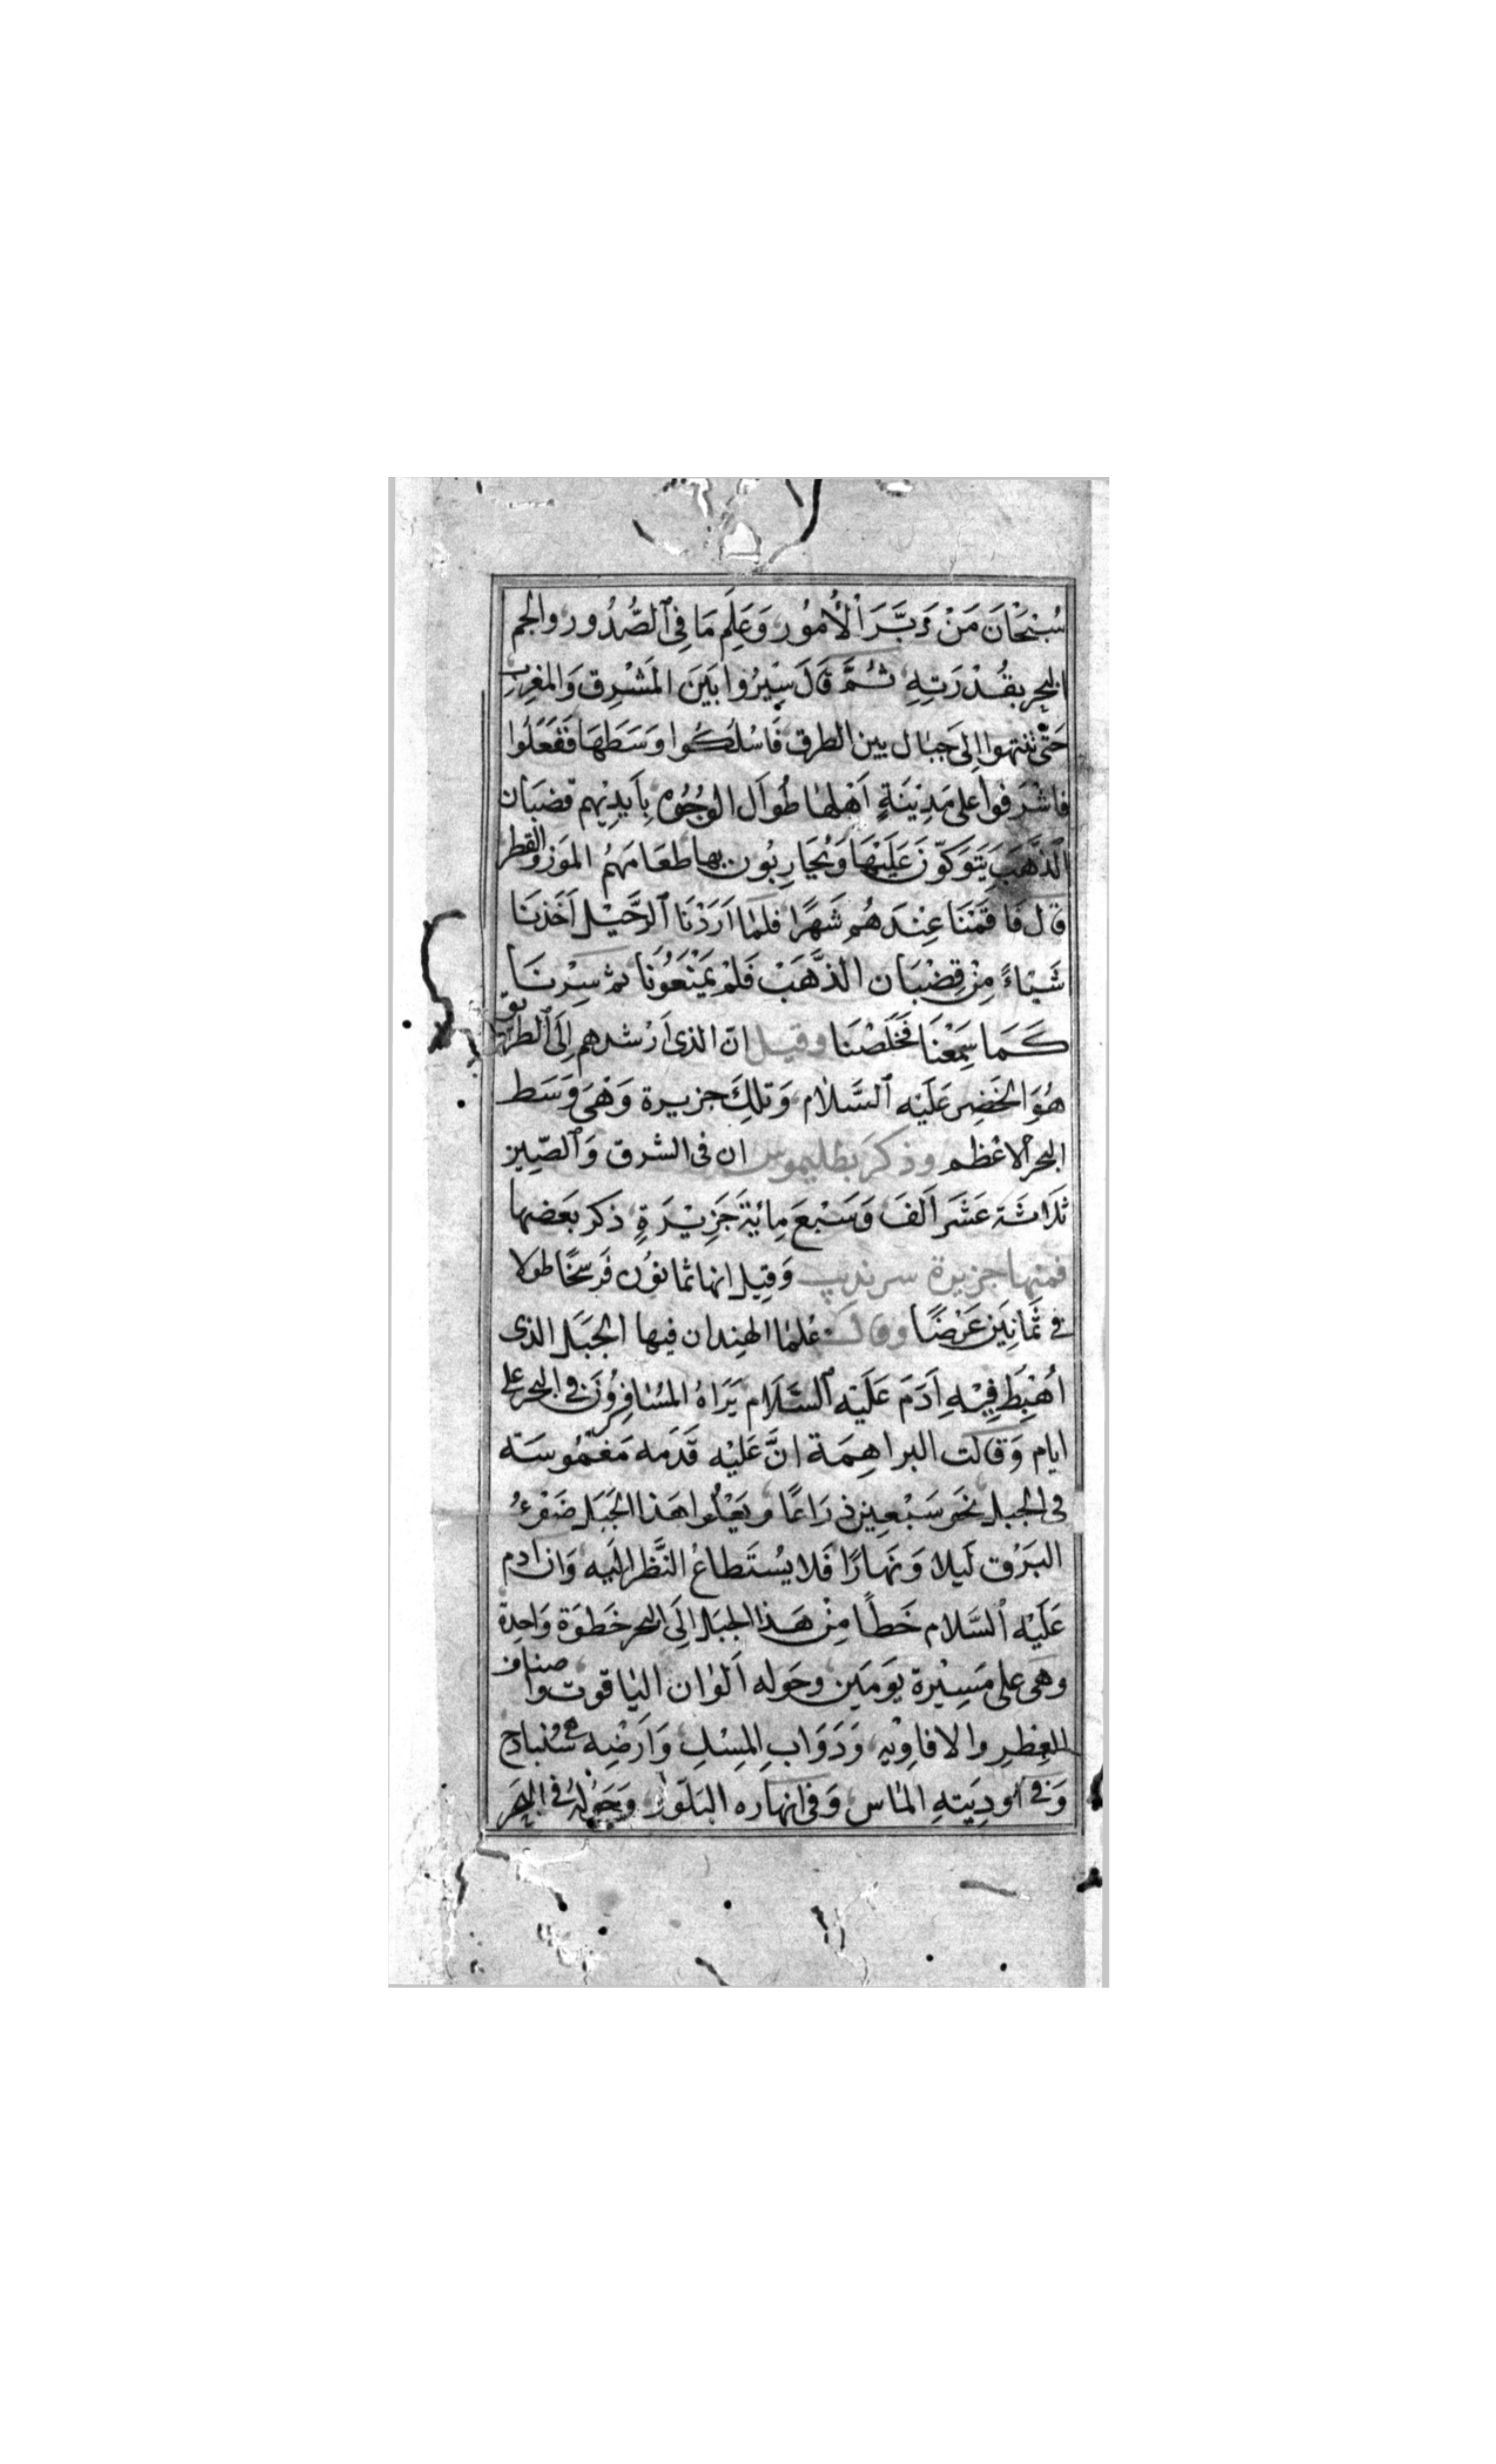 سُبْحَانَ مَنْ دَبَّرَ الْأُمُور وَعَلِمَ مَا فِي ٱلصُّدُور والجم
البحر بقُدْرَتِهِ ثُمَّ قَالَ سِيْرُوا بَيَنَ المَشْرِق وَالمغرِب
حَتّى تنتهوا اِلىَ جبال بين الطرق فَاسْلُكُوا وَسَطهَا فَفَعَلُوا
فاشرَفوا على مَدِيَنَةٍ اَهْلهَا طُوَال الوجُوُه بِاَيدِيْهِم قضبَان
الذَّهَبَ يَتَوَكّوَّنَ عَلَيْهَا وَيُحَارِبُون بها طعَامَهُمُ المَوز والقطر
قال فَاقَمْنَا عِنْدَهُم شَهرًا فلمّا اَرَدْنَا ٱلرَّحَيْل اَخَذنَا
شَيْاءً مِنْ قِضْبَان الذَّهَبْ فَلمْ يَمْنَعُوُنَا ثم سِرْنَا
كَمَا سَمِعْنَا فَخَلَصْنَا وقيل انّ الذى اَرْشدهم اِلَى ٱلطريق
هُوَ الخَضِر عَلَيْه ٱلسَّلام وَتلكَ جزيرة وَهْىَ وَسَط
البحر الاعْظم وذكرَ بطليموس ان فى الشرق وَٱلصّيِن
ثَلَاثَة عَشَر اَلفَ وَسَبْعَ مِائِةَ جَزِيْرَةٍ ذكر بعَضها
فمنها جزيرة سرنديب وَقيل انها ثمانوُن فَرسخًا طولا
فى ثَمَانِيَن عَرْضًا وقال عُلمَا الهِند ان فيها الجَبَل الذى
اُهْبِطَ فِيْهِ اَدَمَ عَلَيْه ٱلسَّلَام يَرَاهُ المُسَافِرُونَ فى البحر على
ايام وَقالت البراهِمَة انَّ عَلَيْه قَدَمه مَغمُوسَة
فى الجبل نحَو سَبْعِين ذِرَاعًا وَيَعْلُوا هَذا الجَبَل ضَوْءُ
البَرْق لَيلا وَنَهارًا فَلا يُسْتَطاعُ النَّظر الَيه وَان ادم
عَلَيْه ٱلسَّلام خَطًا مِنْ هَذا الجبل اِلَى البحر خَطوَة وَاحِدة
وهَى على مَسِيْرة يَومَين وحَوله اَلوان اليَاقوت واصناف
العِطِر والافاوِيْه وَدَوَابِ المِسْكِ وَاَرَضْه سُنبادج
وَفى اودِيَتهِ المَاس وَفى انهاره البَلّوُر وَحَوْلهُ فى البحَر